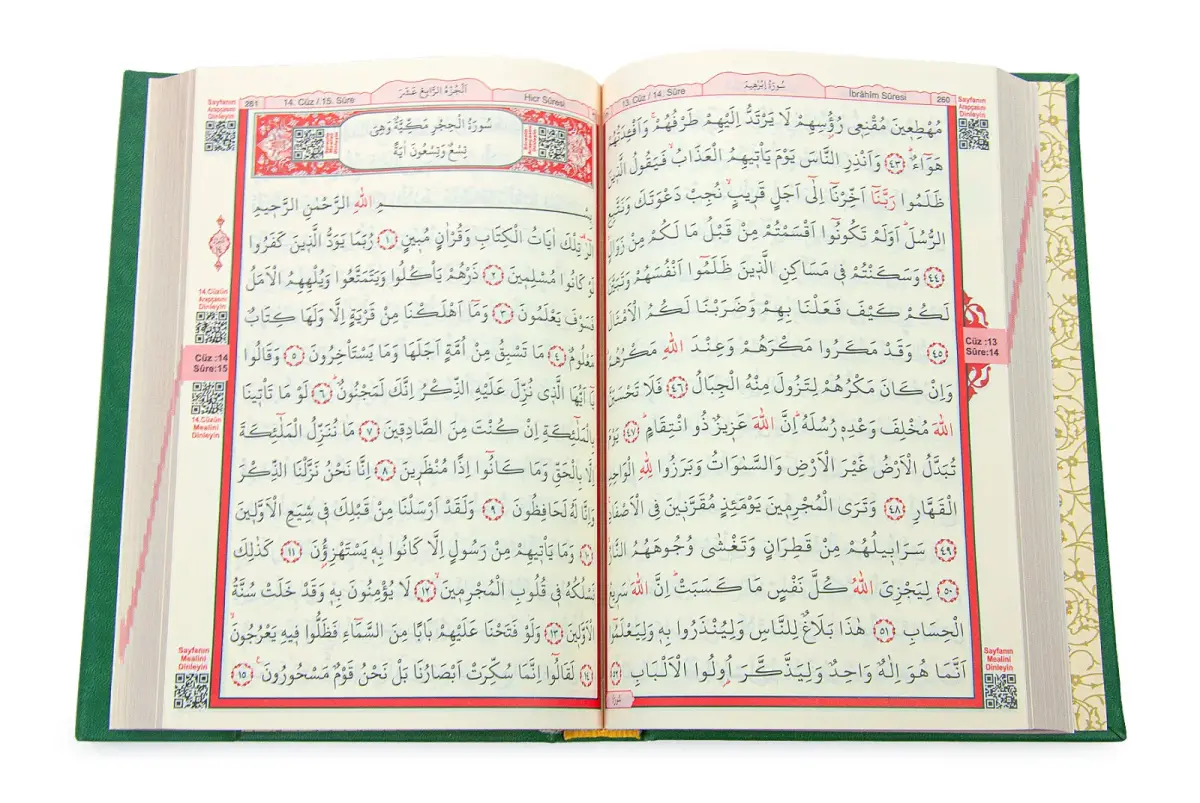 13. Cüz / 14. Sûre
سُورَةُ اِبْرٰه۪يمَ
İbrâhîm Sûresi
260
Sayfanın
Arapçasını
Dinleyin
مُهْطِع۪ينَ مُقْنِع۪ي رُؤُسِهِمْ لَا يَرْتَدُّ اِلَيْهِمْ طَرْفُهُمْۚ وَاَفْـِٔدَتُهُمْ
هَوَٓاءٌۜ ﴿٤٣﴾ وَاَنْذِرِ النَّاسَ يَوْمَ يَأْت۪يهِمُ الْعَذَابُ فَيَقُولُ الَّذ۪ينَ
ظَلَمُوا رَبَّنَٓا اَخِّرْنَٓا اِلٰٓى اَجَلٍ قَر۪يبٍۙ نُجِبْ دَعْوَتَكَ وَنَتَّبِعِ
الرُّسُلَۜ اَوَلَمْ تَكُونُٓوا اَقْسَمْتُمْ مِنْ قَبْلُ مَا لَكُمْ مِنْ زَوَالٍ
﴿٤٤﴾ وَسَكَنْتُمْ ف۪ي مَسَاكِنِ الَّذ۪ينَ ظَلَمُٓوا اَنْفُسَهُمْ وَتَبَيَّنَ
لَكُمْ كَيْفَ فَعَلْنَا بِهِمْ وَضَرَبْنَا لَكُمُ الْاَمْثَالَ
﴿٤٥﴾ وَقَدْ مَكَرُوا مَكْرَهُمْ وَعِنْدَ اللّٰهِ مَكْرُهُمْۜ
وَاِنْ كَانَ مَكْرُهُمْ لِتَزُولَ مِنْهُ الْجِبَالُ ﴿٤٦﴾ فَلَا تَحْسَبَنَّ
اللّٰهَ مُخْلِفَ وَعْدِه۪ رُسُلَهُۜ اِنَّ اللّٰهَ عَز۪يزٌ ذُو انْتِقَامٍۜ ﴿٤٧﴾ يَوْمَ
تُبَدَّلُ الْاَرْضُ غَيْرَ الْاَرْضِ وَالسَّمٰوَاتُ وَبَرَزُوا لِلّٰهِ الْوَاحِدِ
الْقَهَّارِ ﴿٤٨﴾ وَتَرَى الْمُجْرِم۪ينَ يَوْمَئِذٍ مُقَرَّن۪ينَ فِي الْاَصْفَادِۚ
﴿٤٩﴾ سَرَاب۪يلُهُمْ مِنْ قَطِرَانٍ وَتَغْشٰى وُجُوهَهُمُ النَّارُۙ
﴿٥٠﴾ لِيَجْزِيَ اللّٰهُ كُلَّ نَفْسٍ مَا كَسَبَتْۜ اِنَّ اللّٰهَ سَر۪يعُ
الْحِسَابِ ﴿٥١﴾ هٰذَا بَلَاغٌ لِلنَّاسِ وَلِيُنْذَرُوا بِه۪ وَلِيَعْلَمُٓوا
اَنَّمَا هُوَ اِلٰهٌ وَاحِدٌ وَلِيَذَّكَّرَ اُو۬لُوا الْاَلْبَابِ ﴿٥٢﴾
Cüz :13
Sûre:14
Sayfanın
Mealini
Dinleyin
261
14. Cüz / 15. Sûre
اَلْجُزْءُ الرَّابِعُ عَشَرَ
Hicr Sûresi
Sayfanın
Arapçasını
Dinleyin
سُورَةُ الْحِجْرِ مَكِّيَّةٌ وَهِيَ
تِسْعٌ وَتِسْعُونَ اٰيَةً
بِسْمِ اللّٰهِ الرَّحْمٰنِ الرَّح۪يمِ
الٓرٰ۠ تِلْكَ اٰيَاتُ الْكِتَابِ وَقُرْاٰنٍ مُب۪ينٍ ﴿١﴾ رُبَمَا يَوَدُّ الَّذ۪ينَ كَفَرُوا
لَوْ كَانُوا مُسْلِم۪ينَ ﴿٢﴾ ذَرْهُمْ يَأْكُلُوا وَيَتَمَتَّعُوا وَيُلْهِهِمُ الْاَمَلُ
فَسَوْفَ يَعْلَمُونَ ﴿٣﴾ وَمَٓا اَهْلَكْنَا مِنْ قَرْيَةٍ اِلَّا وَلَهَا كِتَابٌ
مَعْلُومٌ ﴿٤﴾ مَا تَسْبِقُ مِنْ اُمَّةٍ اَجَلَهَا وَمَا يَسْتَأْخِرُونَ ﴿٥﴾ وَقَالُوا
يَٓا اَيُّهَا الَّذ۪ي نُزِّلَ عَلَيْهِ الذِّكْرُ اِنَّكَ لَمَجْنُونٌۜ ﴿٦﴾ لَوْ مَا تَأْت۪ينَا
بِالْمَلٰٓئِكَةِ اِنْ كُنْتَ مِنَ الصَّادِق۪ينَ ﴿٧﴾ مَا نُنَزِّلُ الْمَلٰٓئِكَةَ
اِلَّا بِالْحَقِّ وَمَا كَانُٓوا اِذًا مُنْظَر۪ينَ ﴿٨﴾ اِنَّا نَحْنُ نَزَّلْنَا الذِّكْرَ
وَاِنَّا لَهُ لَحَافِظُونَ ﴿٩﴾ وَلَقَدْ اَرْسَلْنَا مِنْ قَبْلِكَ ف۪ي شِيَعِ الْاَوَّل۪ينَ
﴿١٠﴾ وَمَا يَأْت۪يهِمْ مِنْ رَسُولٍ اِلَّا كَانُوا بِه۪ يَسْتَهْزِؤُ۫نَ ﴿١١﴾ كَذٰلِكَ
نَسْلُكُهُ ف۪ي قُلُوبِ الْمُجْرِم۪ينَۙ ﴿١٢﴾ لَا يُؤْمِنُونَ بِه۪ وَقَدْ خَلَتْ سُنَّةُ
الْاَوَّل۪ينَ ﴿١٣﴾ وَلَوْ فَتَحْنَا عَلَيْهِمْ بَابًا مِنَ السَّمَٓاءِ فَظَلُّوا ف۪يهِ يَعْرُجُونَۙ
﴿١٤﴾ لَقَالُٓوا اِنَّمَا سُكِّرَتْ اَبْصَارُنَا بَلْ نَحْنُ قَوْمٌ مَسْحُورُونَ۟ ﴿١٥﴾
14.Cüzün
Arapçasını
Dinleyin
Cüz :14
Sûre:15
14.Cüzün
Mealini
Dinleyin
Sayfanın
Mealini
Dinleyin